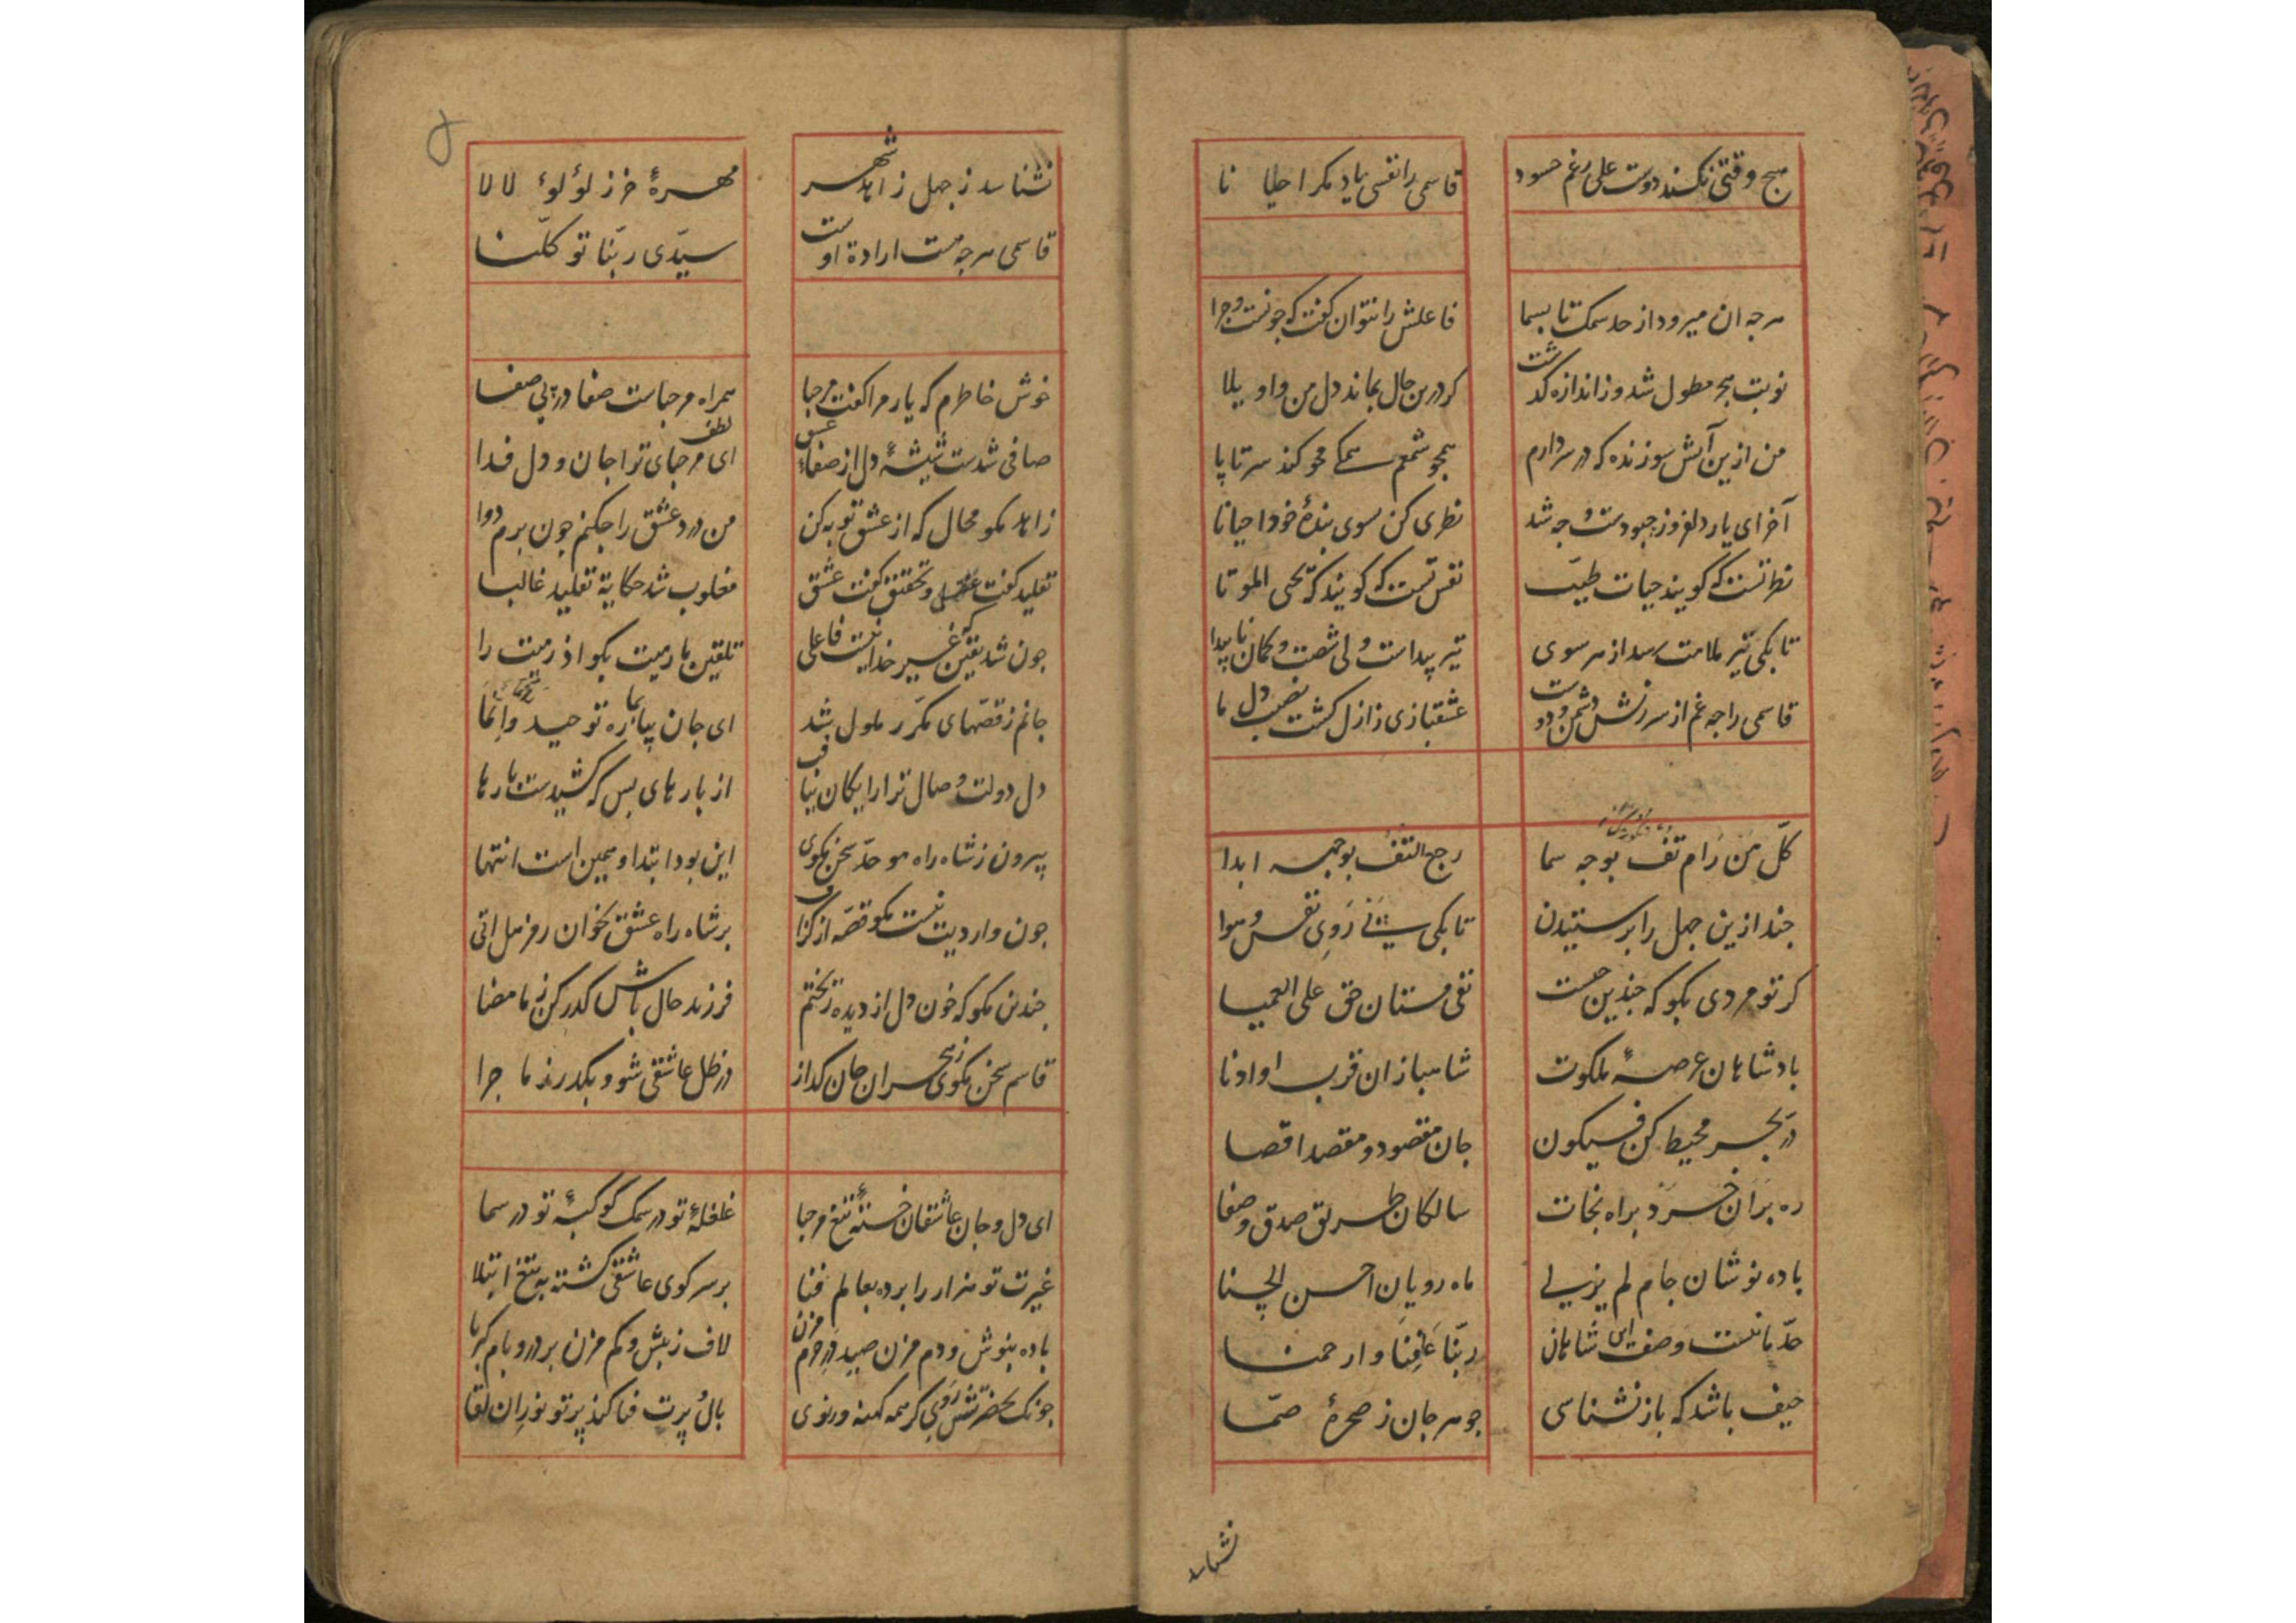 هیچ وقتی نکند دوست علی رغم حسود
قاسمی را نفسی یاد مکر احیانا
هرجه ان میرود از حد سمک تا بسما
فاعلش را نتوان کفت که جونست و جرا
نوبت هجر مطول شد و ز اندازه کذشت
کر درین حال بماند دل من واویلا
من ازین آتش سوزنده که در سر دارم
همجو شمعم همکی محو کند سر تا پا
آخر ای یار دلفروز جبودست و جه شد
نظری کن بسوی بندهٔ خود احیانا
نظر تست که کویند حیات طیّب
نفس تست که کویند که یحی الموتا
تا بکی تیر ملامت رسد از هر سوی
تیر پیداست ولی شصت و کمان ناپیدا
قاسمی را جه غم از سرزنش دشمن و دوست
عشقبازی ز ازل کشت نصیب دل ما
کلّ من رام تف بوجه سما
رجع التف بوجهه ابدا
جند ازین جهل را پرستیدن
تا بکی در پی روی نفس و هوا
کر تو مردی بکو که جندین جست
نفی مستان حق علی العمیا
بادشاهان عرصهٔ ملکوت
شاهبازان قرب او ادنا
در بحر محیط کن فیکون
جان مقصود و مقصد اقصا
ره بران خرد براه نجات
سالکان طریق صدق و صفا
باده نوشان جام لم یزلی
ماه رویان احسن الحسنا
حدّ ما نیست وصف این شاهان
ربّنا عافنا و ارحمنا
حیف باشد که باز نشناسی
جوهر جان ز صخرهٔ صمّا
نشناسد
۵
نشناسد ز جهل زاهد شهر
مهرهٔ خر ز لؤلؤ لالا
قاسمی هرجه هست ارادهٔ اوست
سیّدی ربّنا توکّلنا
خوش خاطرم که یار مرا کفت مرحبا
همراه مرحباست صفا در پی صفا
صافی شدست شیشهٔ دل از صفاء عشق
ای مرحبای لطف ترا جان و دل فدا
زاهد مکو محال که از عشق توبه کن
من درد عشق را جکنم جون برم دوا
تقلید کفت عقل و تحقیق کفت عشق
مغلوب شد حکایة تقلید غالبا
جون شد یقین که غیر خدا نیست فاعلی
تلقین ما رمیت بکو اذ رمیت را
جانم ز قصّهای مکرّر ملول شد
ای جان بیا بما ره توحید وانما
دل دولت وصال ترا رایکان نیافت
از بارهای بس که کشیدست بارها
بیرون ز شاه راه موحّد سخن مکوی
این بود ابتدا و همین است انتها
جون واردیت نیست مکو قصّه از کزاف
بر شاه راه عشق بخوان رمز هل اتی
جندین مکو که خون دل از دیده ریختم
فرزند حال باش کذر کن ز ما مضا
قاسم سخن مکوی ز هجران جان کداز
در ظل عاشقی شو و بکذر ز ماجرا
ای دل و جان عاشقان خستهٔ تیغ مرحبا
غلغلهٔ تو در سمک کوکبهٔ تو در سما
غیرت تو هزار را برده بعالم فنا
بر سر کوی عاشقی کشته به تیغ ابتلا
باده بنوش و دم مزن صید در حرم مزن
لاف ز بیش و کم مزن بر در و بام کبریا
جونک بحضرتش روی کر همه کهنه ور نوی
بال و پرت فنا کند پرتو نور ان لقا